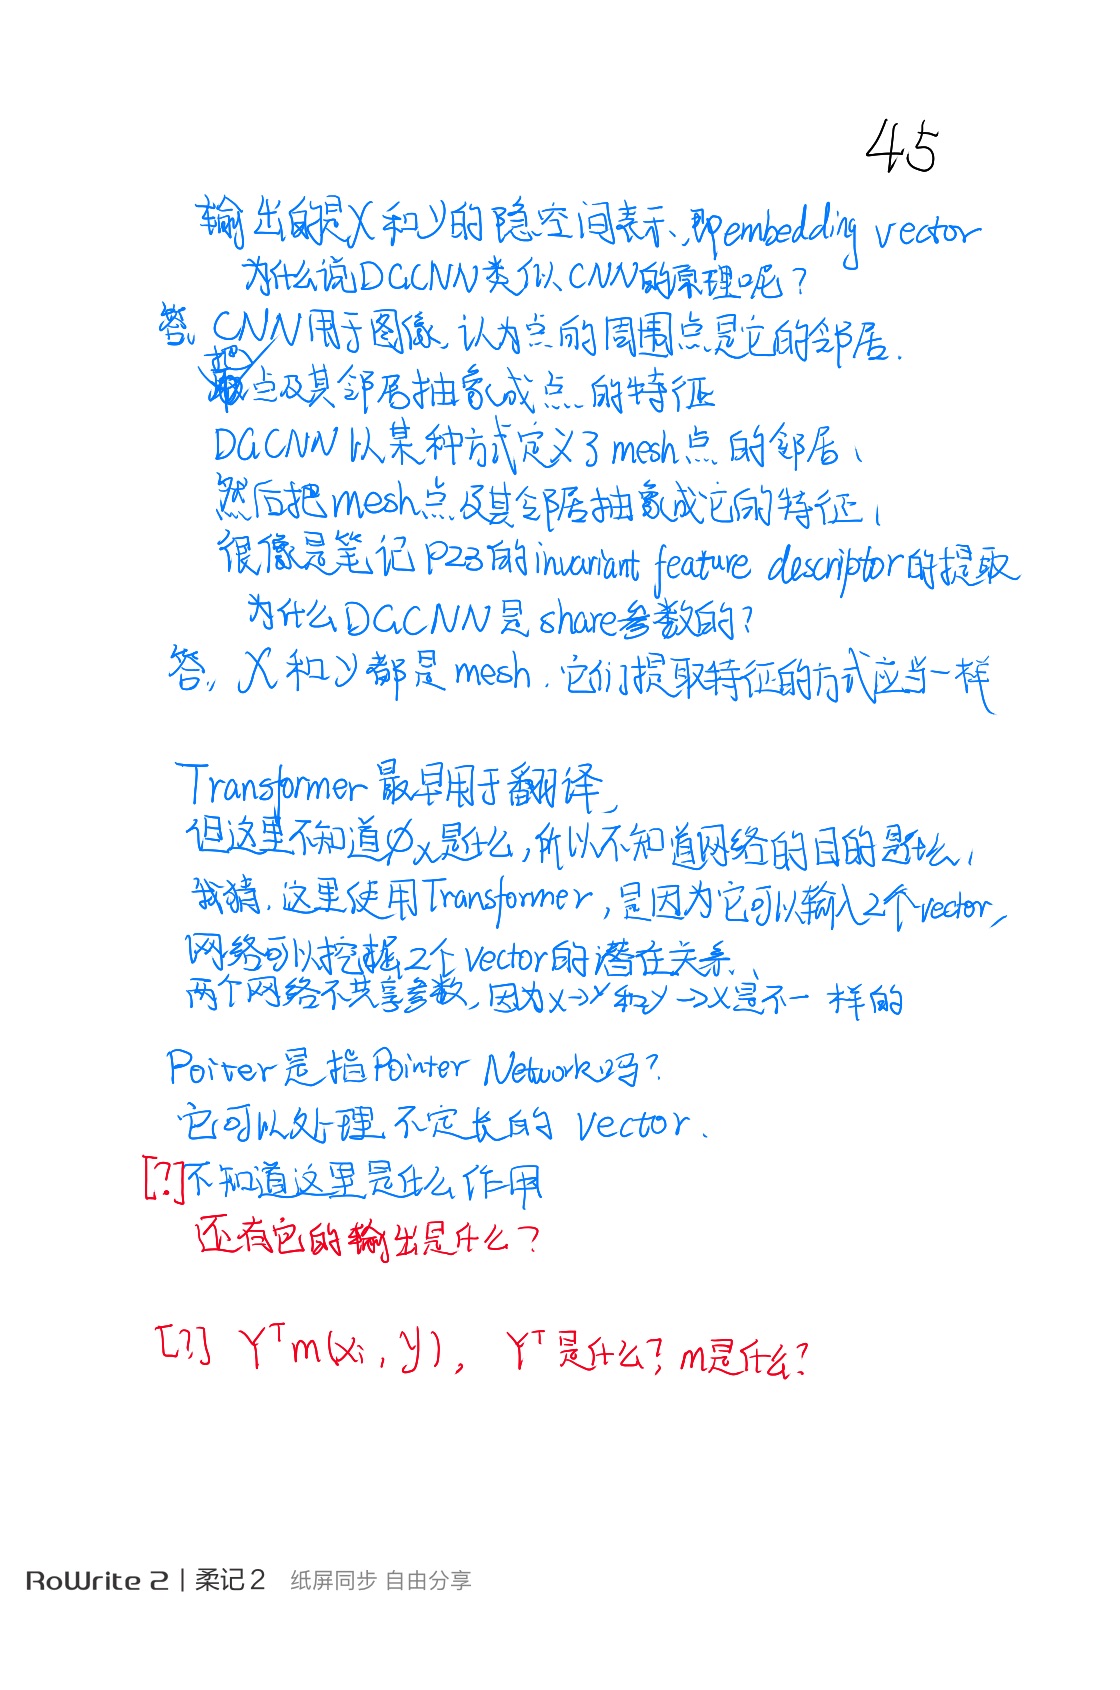 45
输出的是X和y的隐空间表示,即embedding vector
为什么说DGCNN类似CNN的原理呢?
答, CNN用于图像,认为点的周围点是它的邻居.
把点及其邻居抽象成点的特征
DGCNN以某种方式定义了mesh点的邻居,
然后把mesh点及其邻居抽象成它的特征,
很像是笔记P23的invariant feature descriptor的提取
为什么DGCNN是share参数的?
答, X和y都是mesh.它们提取特征的方式应当一样
Transformer最早用于翻译,
但这里不知道φx是什么,所以不知道网络的目的是什么,
我猜,这里使用Transformer,是因为它可以输入2个vector,
网络可以挖掘2个vector的潜在关系,
两个网络不共享参数,因为x→y和y→x是不一样的
Poiter是指Pointer Network吗?
它可以处理不定长的vector.
[?]不知道这里是什么作用
还有它的输出是什么?
[?] Yᵀm(xᵢ, y), Yᵀ是什么? m是什么?
RoWrite 2 | 柔记2 纸屏同步 自由分享